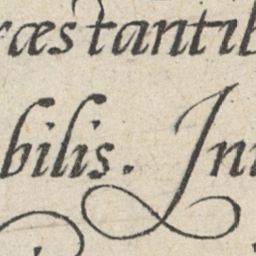 ræstantib
bilis. Ini